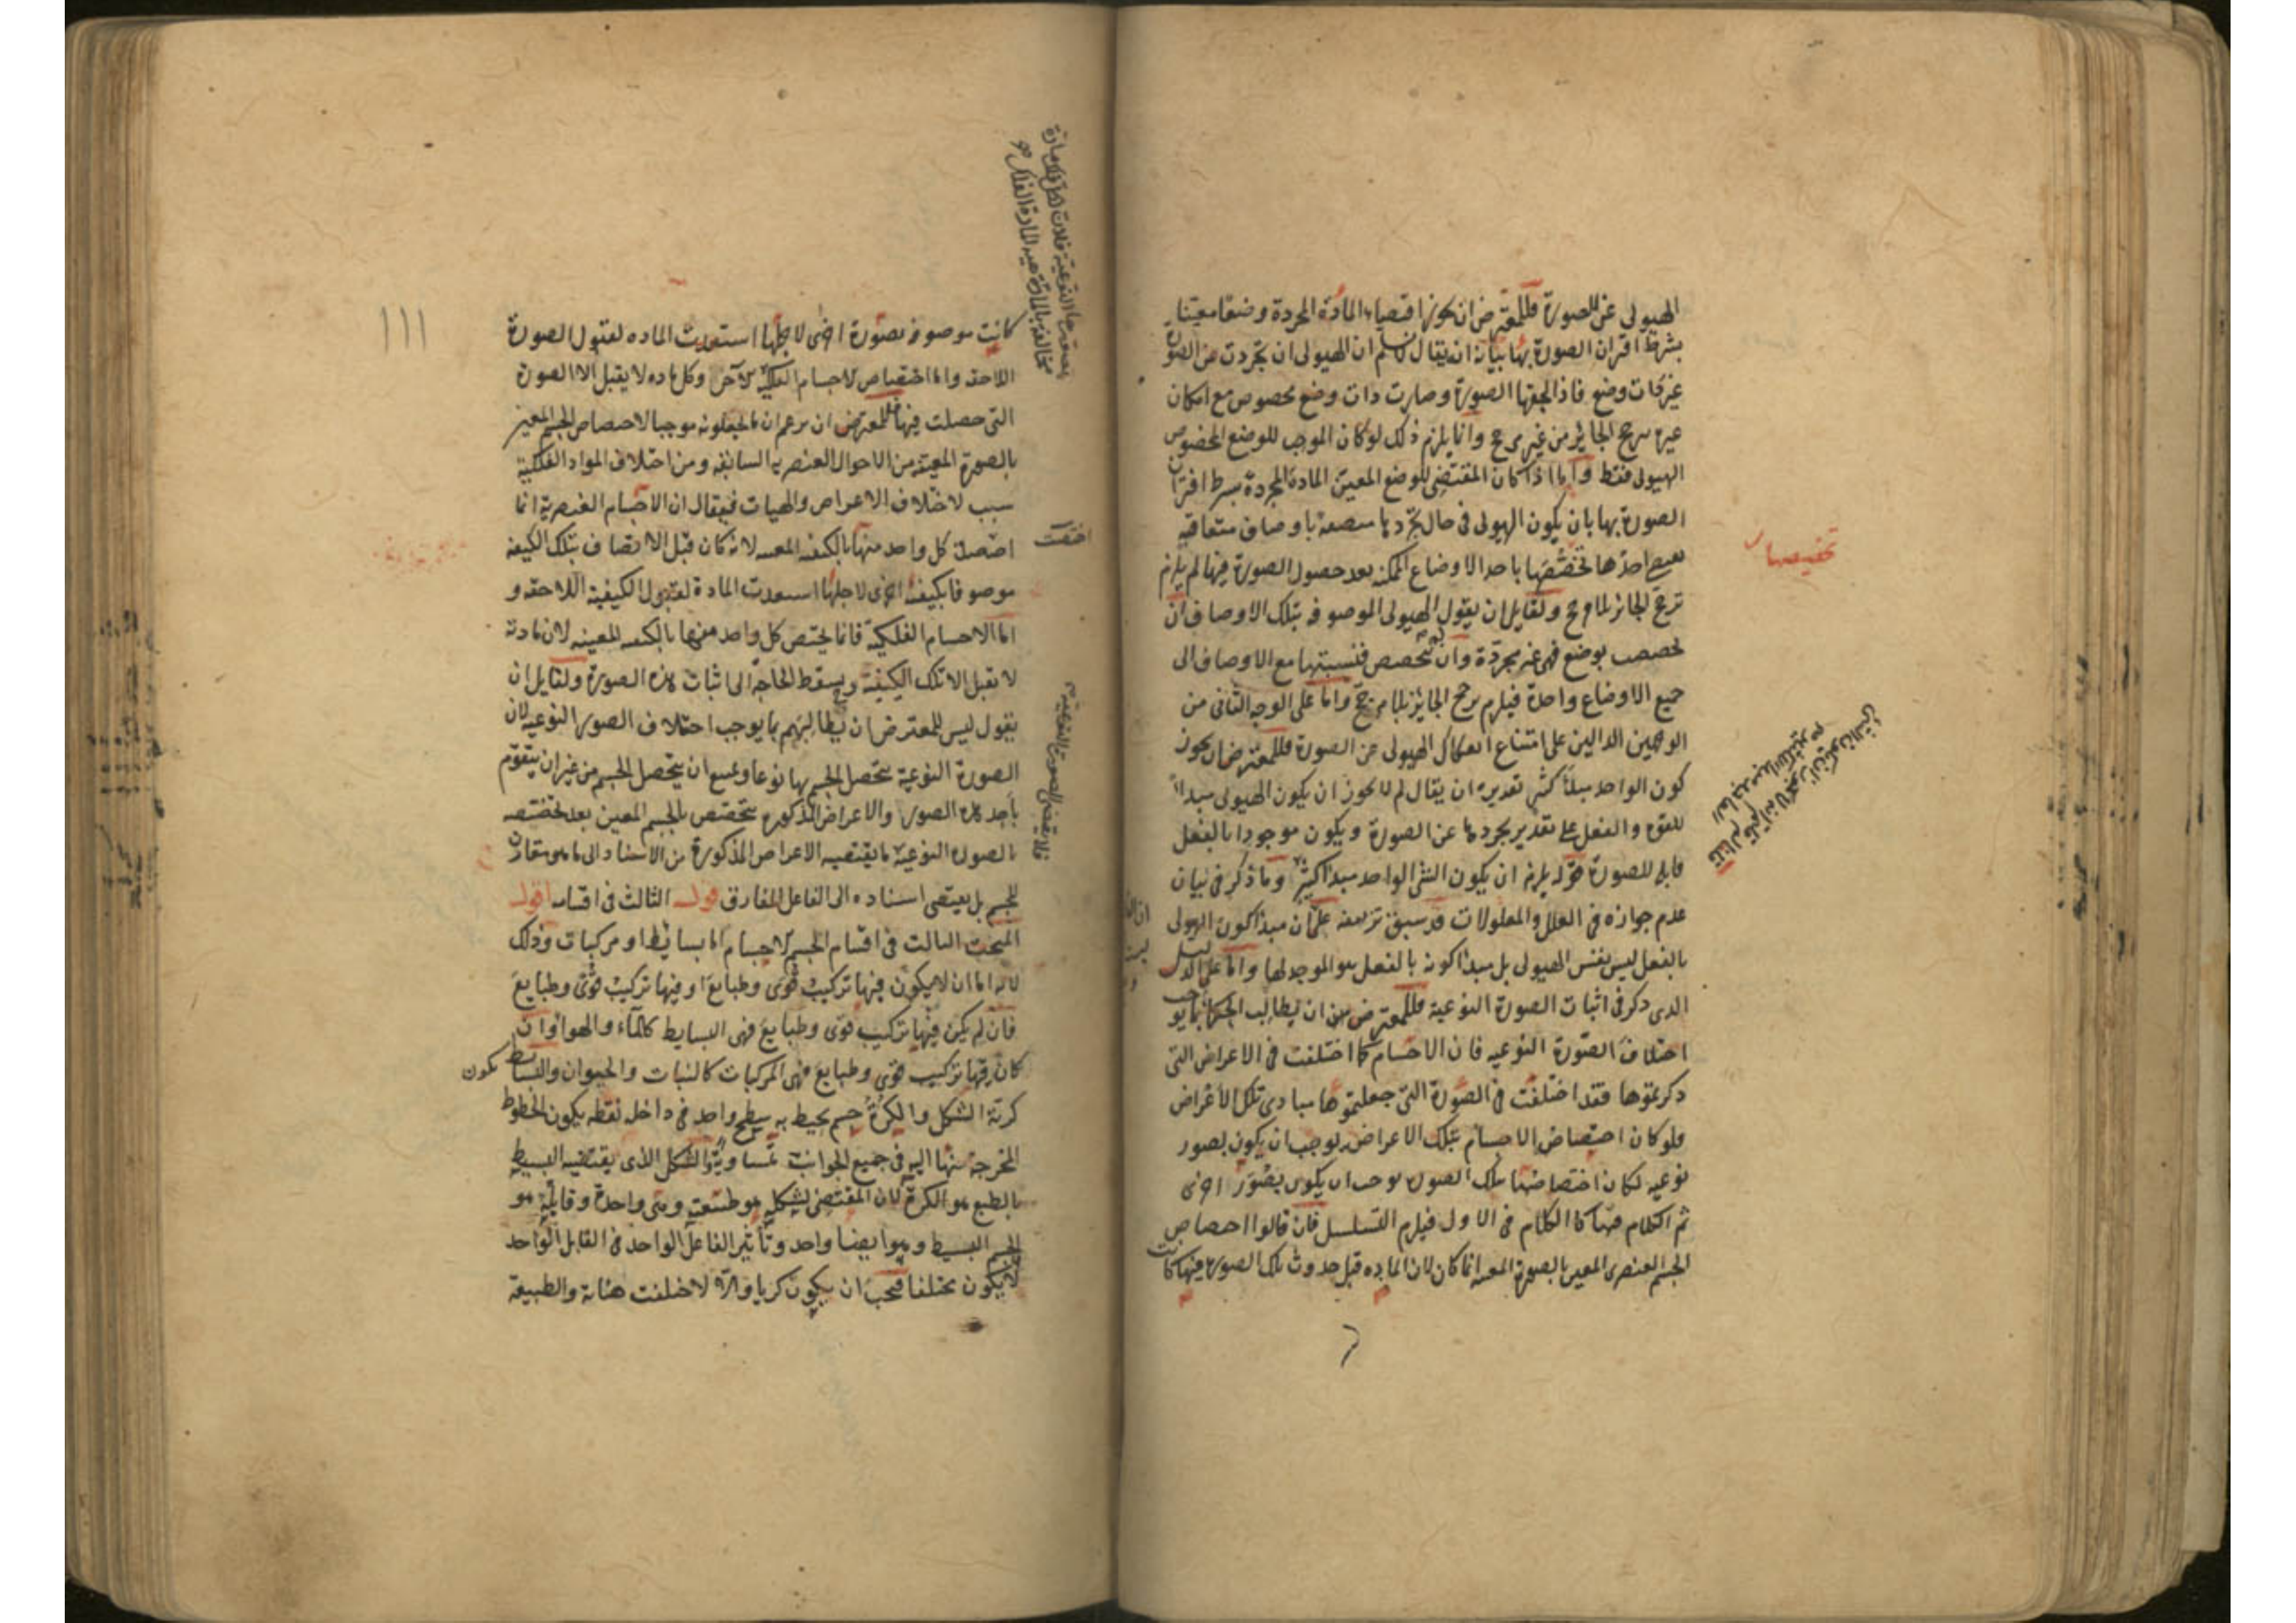 الهيولى عن الصورة فللمعترض ان يجوز اقتضاء المادة المجردة وضعا معينا
بشرط اقتران الصورة بها بيانه ان يقال لا نسلم ان الهيولى ان تجردت عن الصورة
غير ذات وضع فاذا لحقتها الصورة وصارت ذات وضع مخصوص مع امكان
غيره ترجح الجائز من غير مرجح وانما يلزم ذلك لو كان الموجب للوضع المخصوص
الهيولى فقط واما اذا كان المقتضى للوضع المعين المادة المجردة بشرط اقتران
الصورة بها بان يكون الهيولى في حال تجردها متصفة باوصاف متعاقبة
احدها تخصصها باحد الاوضاع الممكنة بعد حصول الصورة فيها لم يلزم
ترجح الجائز بلا مرجح ولقايل ان يقول الهيولى الموصوفة بتلك الاوصاف ان
تخصصت بوضع فهي غير مجردة وان لم تتخصص فنسبتها مع الاوصاف الى
جميع الاوضاع واحدة فيلزم ترجح الجايز بلا مرجح واما على الوجه الثاني من
الوجهين الدالين على امتناع انفكاك الهيولى عن الصورة فللمعترض ان يجوز
كون الواحد مبدأ كثير تقديره ان يقال لم لا يجوز ان يكون الهيولى مبدأ
للقوة والفعل على تقدير تجردها عن الصورة ويكون موجودا بالفعل
قابلة للصورة قوله يلزم ان يكون الشئ الواحد مبدأ كثير وما ذكر في بيان
عدم جوازه في العلل والمعلولات قد سبق تزييفه على ان مبدأ كون الهيولى
بالفعل ليس نفس الهيولى بل مبدأ كونه بالفعل هو الموجد لها واما على الدليل
الذي ذكر في اثبات الصورة النوعية فللمعترض ان يطالب الحكماء بما يوجب
اختلاف الصورة النوعيه فان الاجسام كما اختلفت في الاعراض التي
ذكرتموها فقد اختلفت في الصورة التي جعلتموها مبادى تلك الاعراض
فلو كان اختصاص الاجسام بتلك الاعراض يوجب ان يكون بصور
نوعيه لكان اختصاصها بتلك الصور يوجب ان يكون بصور اخرى
ثم الكلام فيها كالكلام في الاول فيلزم التسلسل فان قالوا اختصاص
الجسم العنصرى المعين بالصورة المعينة انما كان لان الماده قبل حدوث تلك الصورة فيها كانت
تخصيصها
كانت موصوفة بصورة اخرى لاجلها استعدت الماده لقبول الصورة
اللاحقة واما اختصاص الاجسام الفلكية لان كل ماده لا يقبل الا الصورة
التي حصلت فيها فللمعترض ان يزعم ان ما تجعلونه موجبا لاختصاص الجسم المعين
بالصورة المعينة من الاحوال العنصرية السابقة ومن اختلاف المواد الفلكية
سبب لاختلاف الاعراض والهيات فيقال ان الاجسام العنصرية انما
اختصت كل واحد منها بالكيفية المعينة لانه كان قبل الاتصاف بتلك الكيفية
موصوفا بكيفية اخرى لاجلها استعدت المادة لقبول الكيفية اللاحقة و
اما الاجسام الفلكية فانما يختص كل واحد منها بالكيفية المعينه لان مادته
لا تقبل الا تلك الكيفية ويسقط الحاجة الى اثبات هذه الصورة ولقايل ان
يقول ليس للمعترض ان يطالبهم بما يوجب اختلاف الصور النوعيه لان
الصورة النوعية يتحصل الجسم بها نوعا ويمتنع ان يتحصل الجسم من غير ان يتقوم
باحد هذه الصور والاعراض المذكورة يتخصص بالجسم المعين بعد تخصصه
بالصورة النوعية ما يقتضيه الاعراض المذكورة من الاسناد الى ما هو مقارن
للجسم بل يقتضى اسناده الى الفاعل المفارق قوله الثالث في اقسامه اقول
المبحث الثالث في اقسام الجسم الاجسام اما بسايط او مركبات وذلك
لانه اما ان لا يكون فيها تركيب قوى وطبايع او فيها تركيب قوى وطبايع
فان لم يكن فيها تركيب قوى وطبايع فهي البسايط كالماء والهواء وان
كان فيها تركيب قوى وطبايع فهي المركبات كالنبات والحيوان والبسايط تكون
كرية الشكل والكرة جسم يحيط به سطح واحد في داخله نقطة يكون الخطوط
المخرجة منها اليه في جميع الجوانب متساوية والشكل الذى يقتضيه البسيط
بالطبع هو الكرة لان المقتضى لشكله هو طبيعته وهي واحدة وقابله هو
الجسم البسيط وهو ايضا واحد وتأثير الفاعل الواحد في القابل الواحد
لا يكون مختلفا فيجب ان يكون كريا والا لاختلفت هيئاته والطبيعة
اختصت
فلا يقتضى الصورة النوعية
١١١